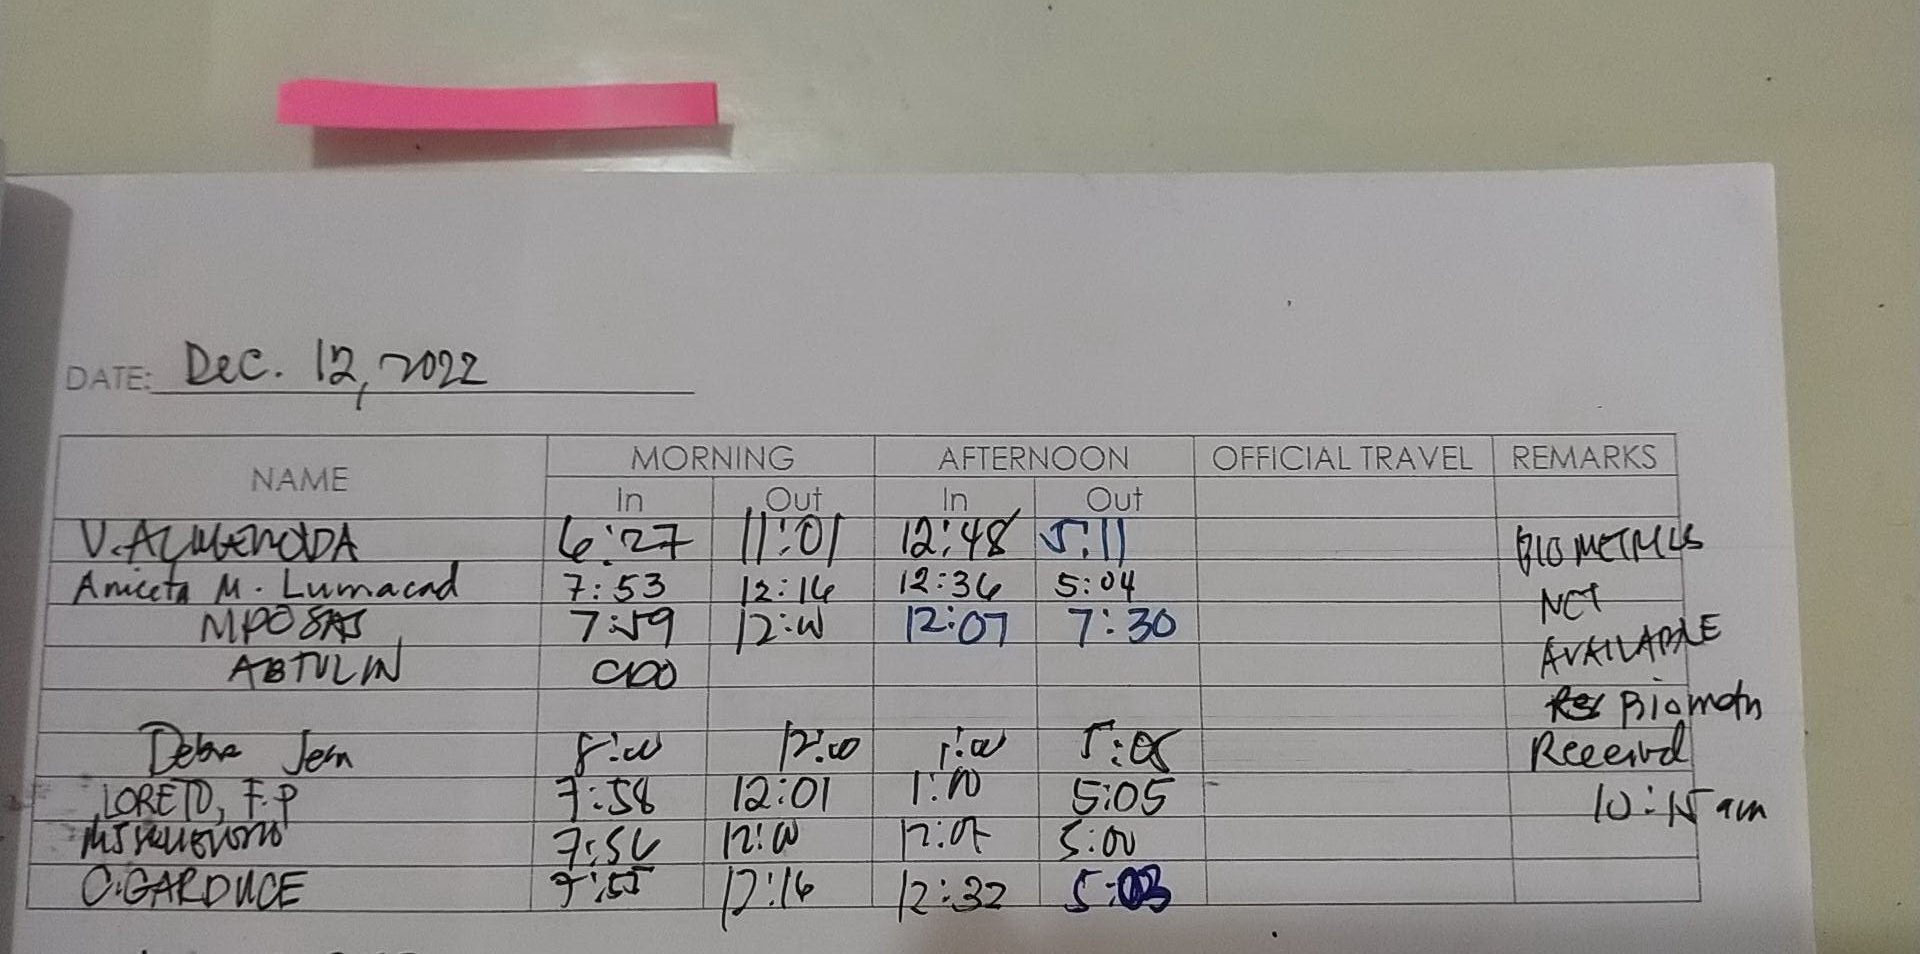 DATE: Dec. 12, 2022
NAME MORNING AFTERNOON OFFICIAL TRAVEL REMARKS
In Out In Out
6:27 11:01 12:48 5:11 BIOMETRICS
Aniceta M. Lumacad 7:53 12:16 12:36 5:04 NOT
MPOSAS 7:59 12:00 12:07 7:30 AVAILABLE
ABTULIN CDO
Biometr
Jem 8:00 12:00 1:00 5:05 Received
LORETO, F.P 7:58 12:01 1:00 5:05 10:15 am
7:56 12:00 12:07 5:00
C.GARDUCE 7:55 12:16 12:32 5:03